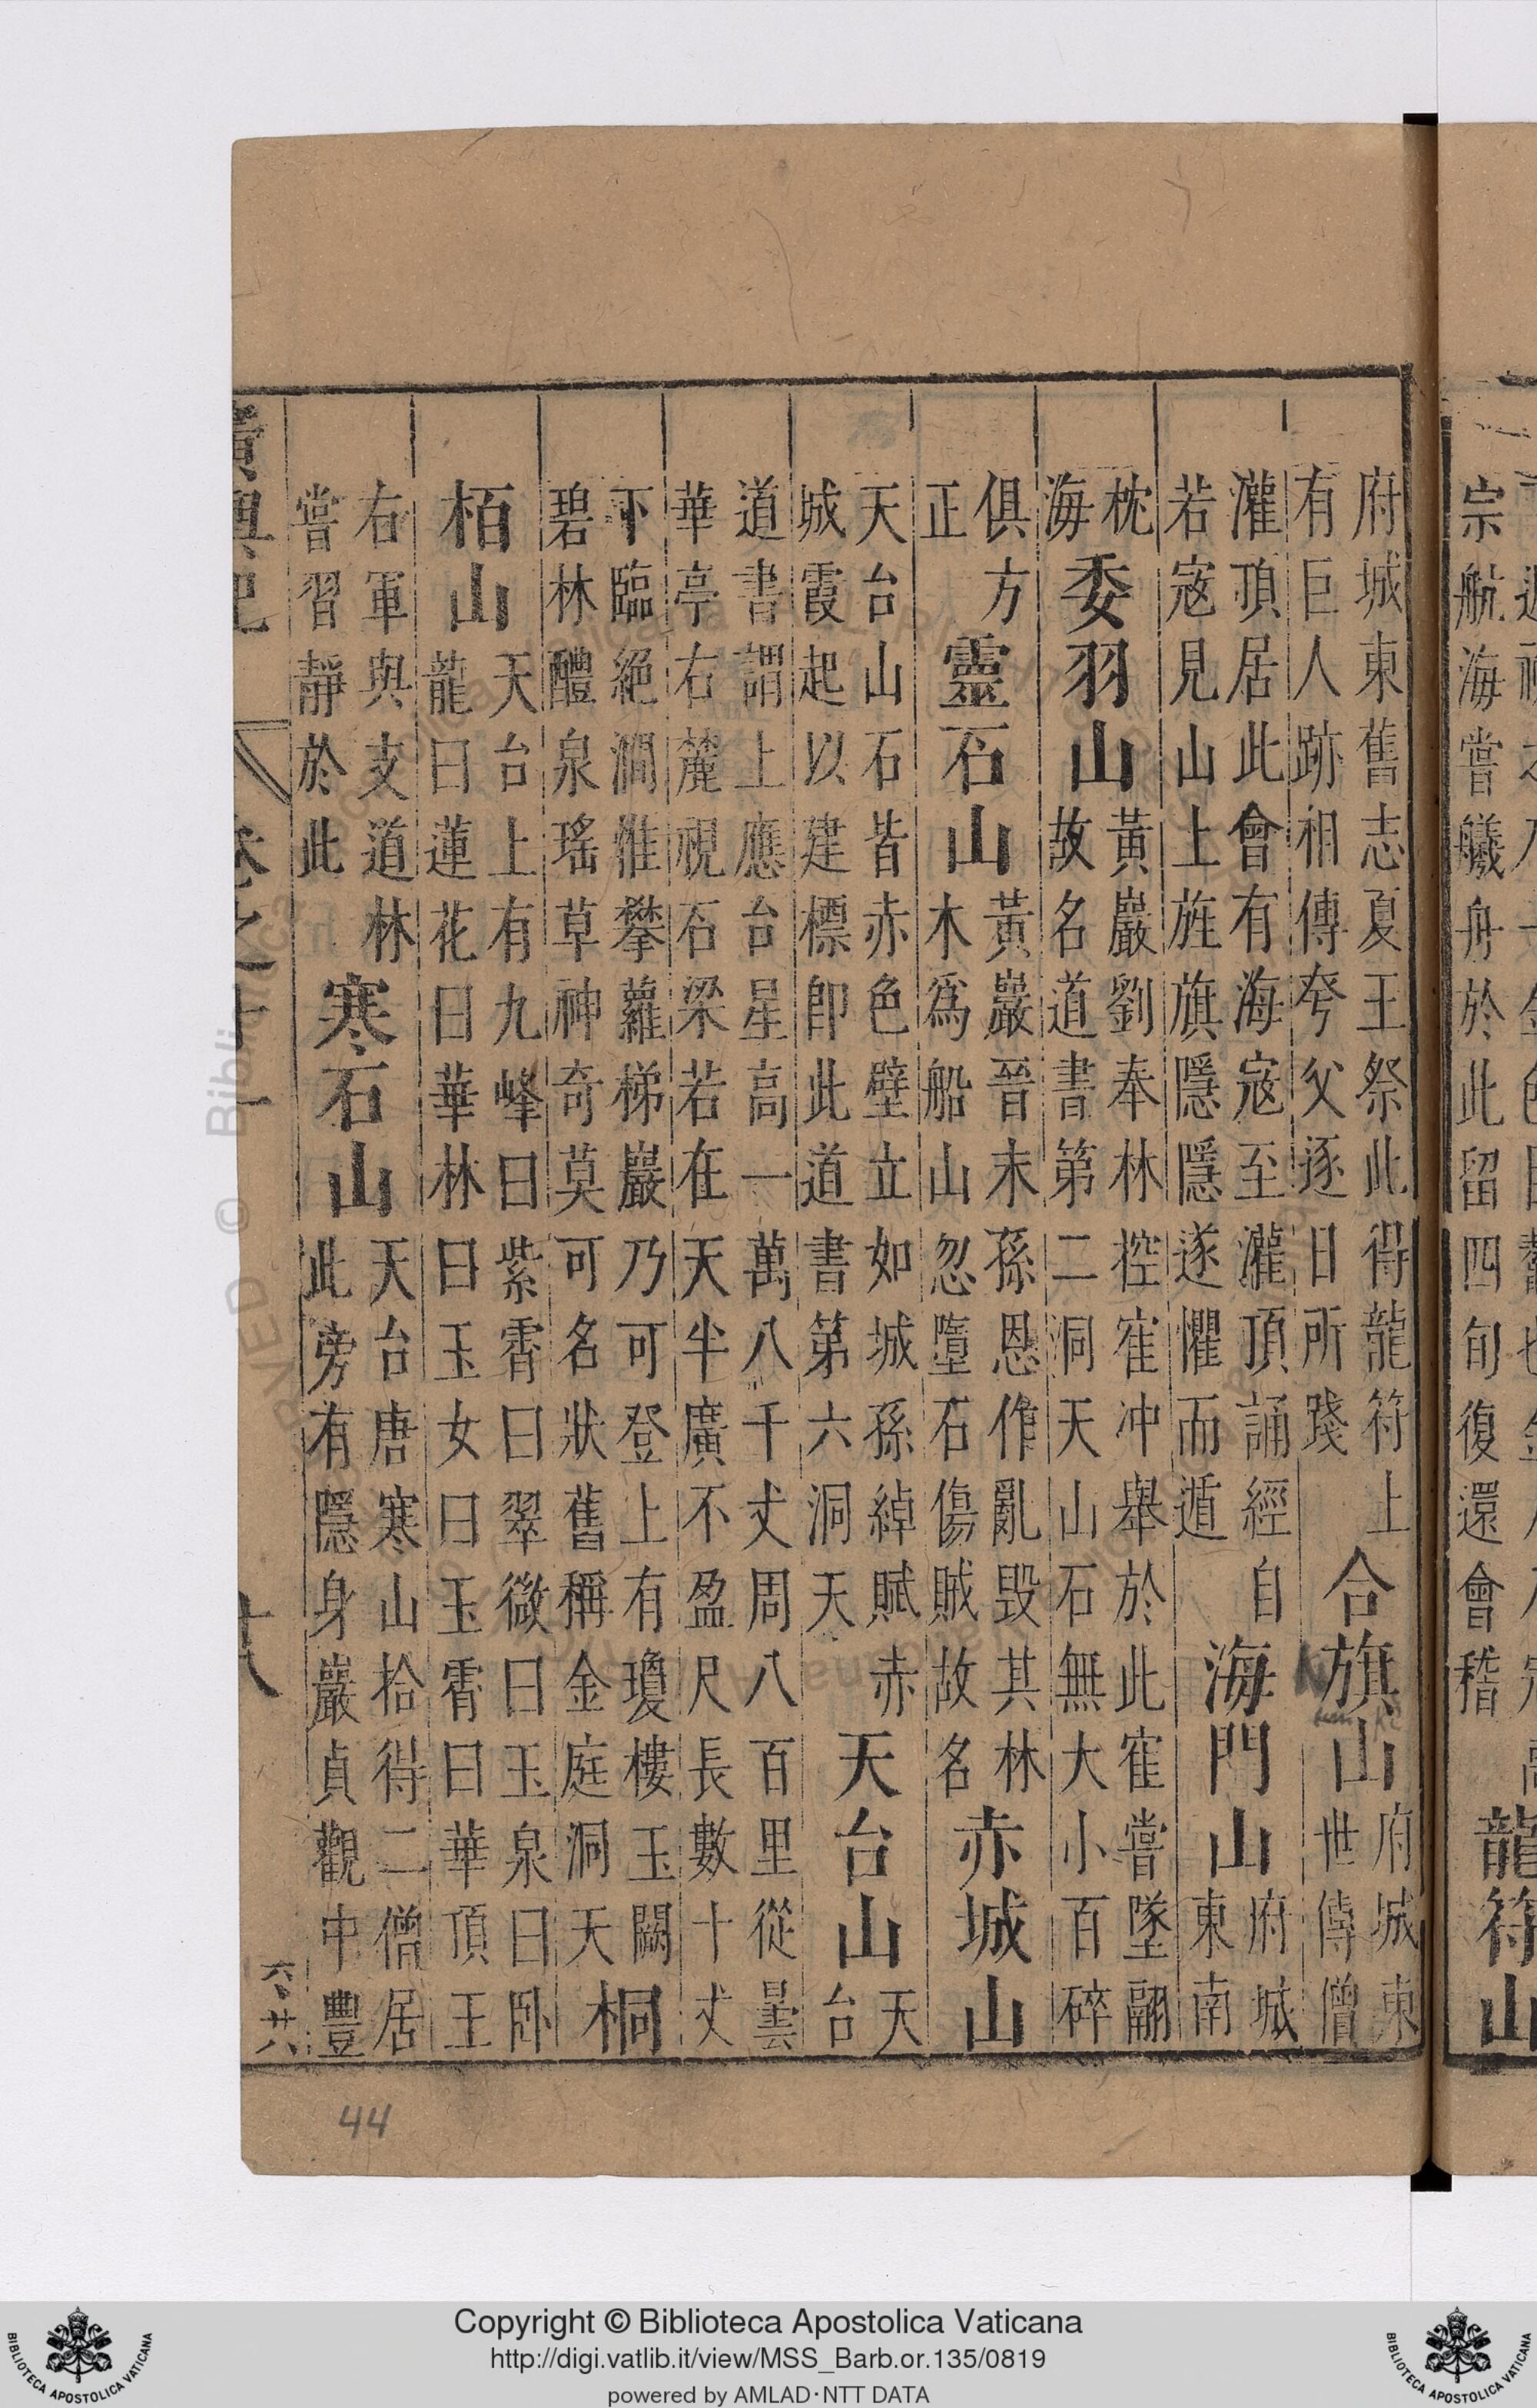 宗航海嘗艤舟於此留四旬復還會稽
龍符山
府城東舊志夏王祭此得龍符上
有巨人跡相傳夸父逐日所踐
合旗山
府城東
世傳僧
灌頂居此會有海寇至灌頂誦經自
若寇見山上旌旗隱隱遂懼而遁
海門山
府城
東南
枕
海
委羽山
黃巖劉奉林控寉冲舉於此寉嘗墜翮
故名道書第二洞天山石無大小百碎
俱方
正
靈石山
黃巖晉末孫恩作亂毀其林
木爲船山忽墮石傷賊故名
赤城山
天台山石皆赤色壁立如城孫綽賦赤
城霞起以建標即此道書第六洞天
天台山
天
台
道書謂上應台星高一萬八千丈周八百里從曇
華亭右麓視石梁若在天半廣不盈尺長數十丈
下臨絕澗惟攀蘿梯巖乃可登上有瓊樓玉闕
碧林醴泉瑤草神奇莫可名狀舊稱金庭洞天
桐
栢山
天台上有九峰曰紫霄曰翠微曰玉泉曰卧
龍曰蓮花曰華林曰玉女曰玉霄曰華頂王
右軍與支道林
嘗習靜於此
寒石山
天台唐寒山拾得二僧居
此旁有隱身巖貞觀中豐
廣輿記
卷之十一
十八
44
Copyright © Biblioteca Apostolica Vaticana
http://digi.vatlib.it/view/MSS_Barb.or.135/0819
powered by AMLAD·NTT DATA